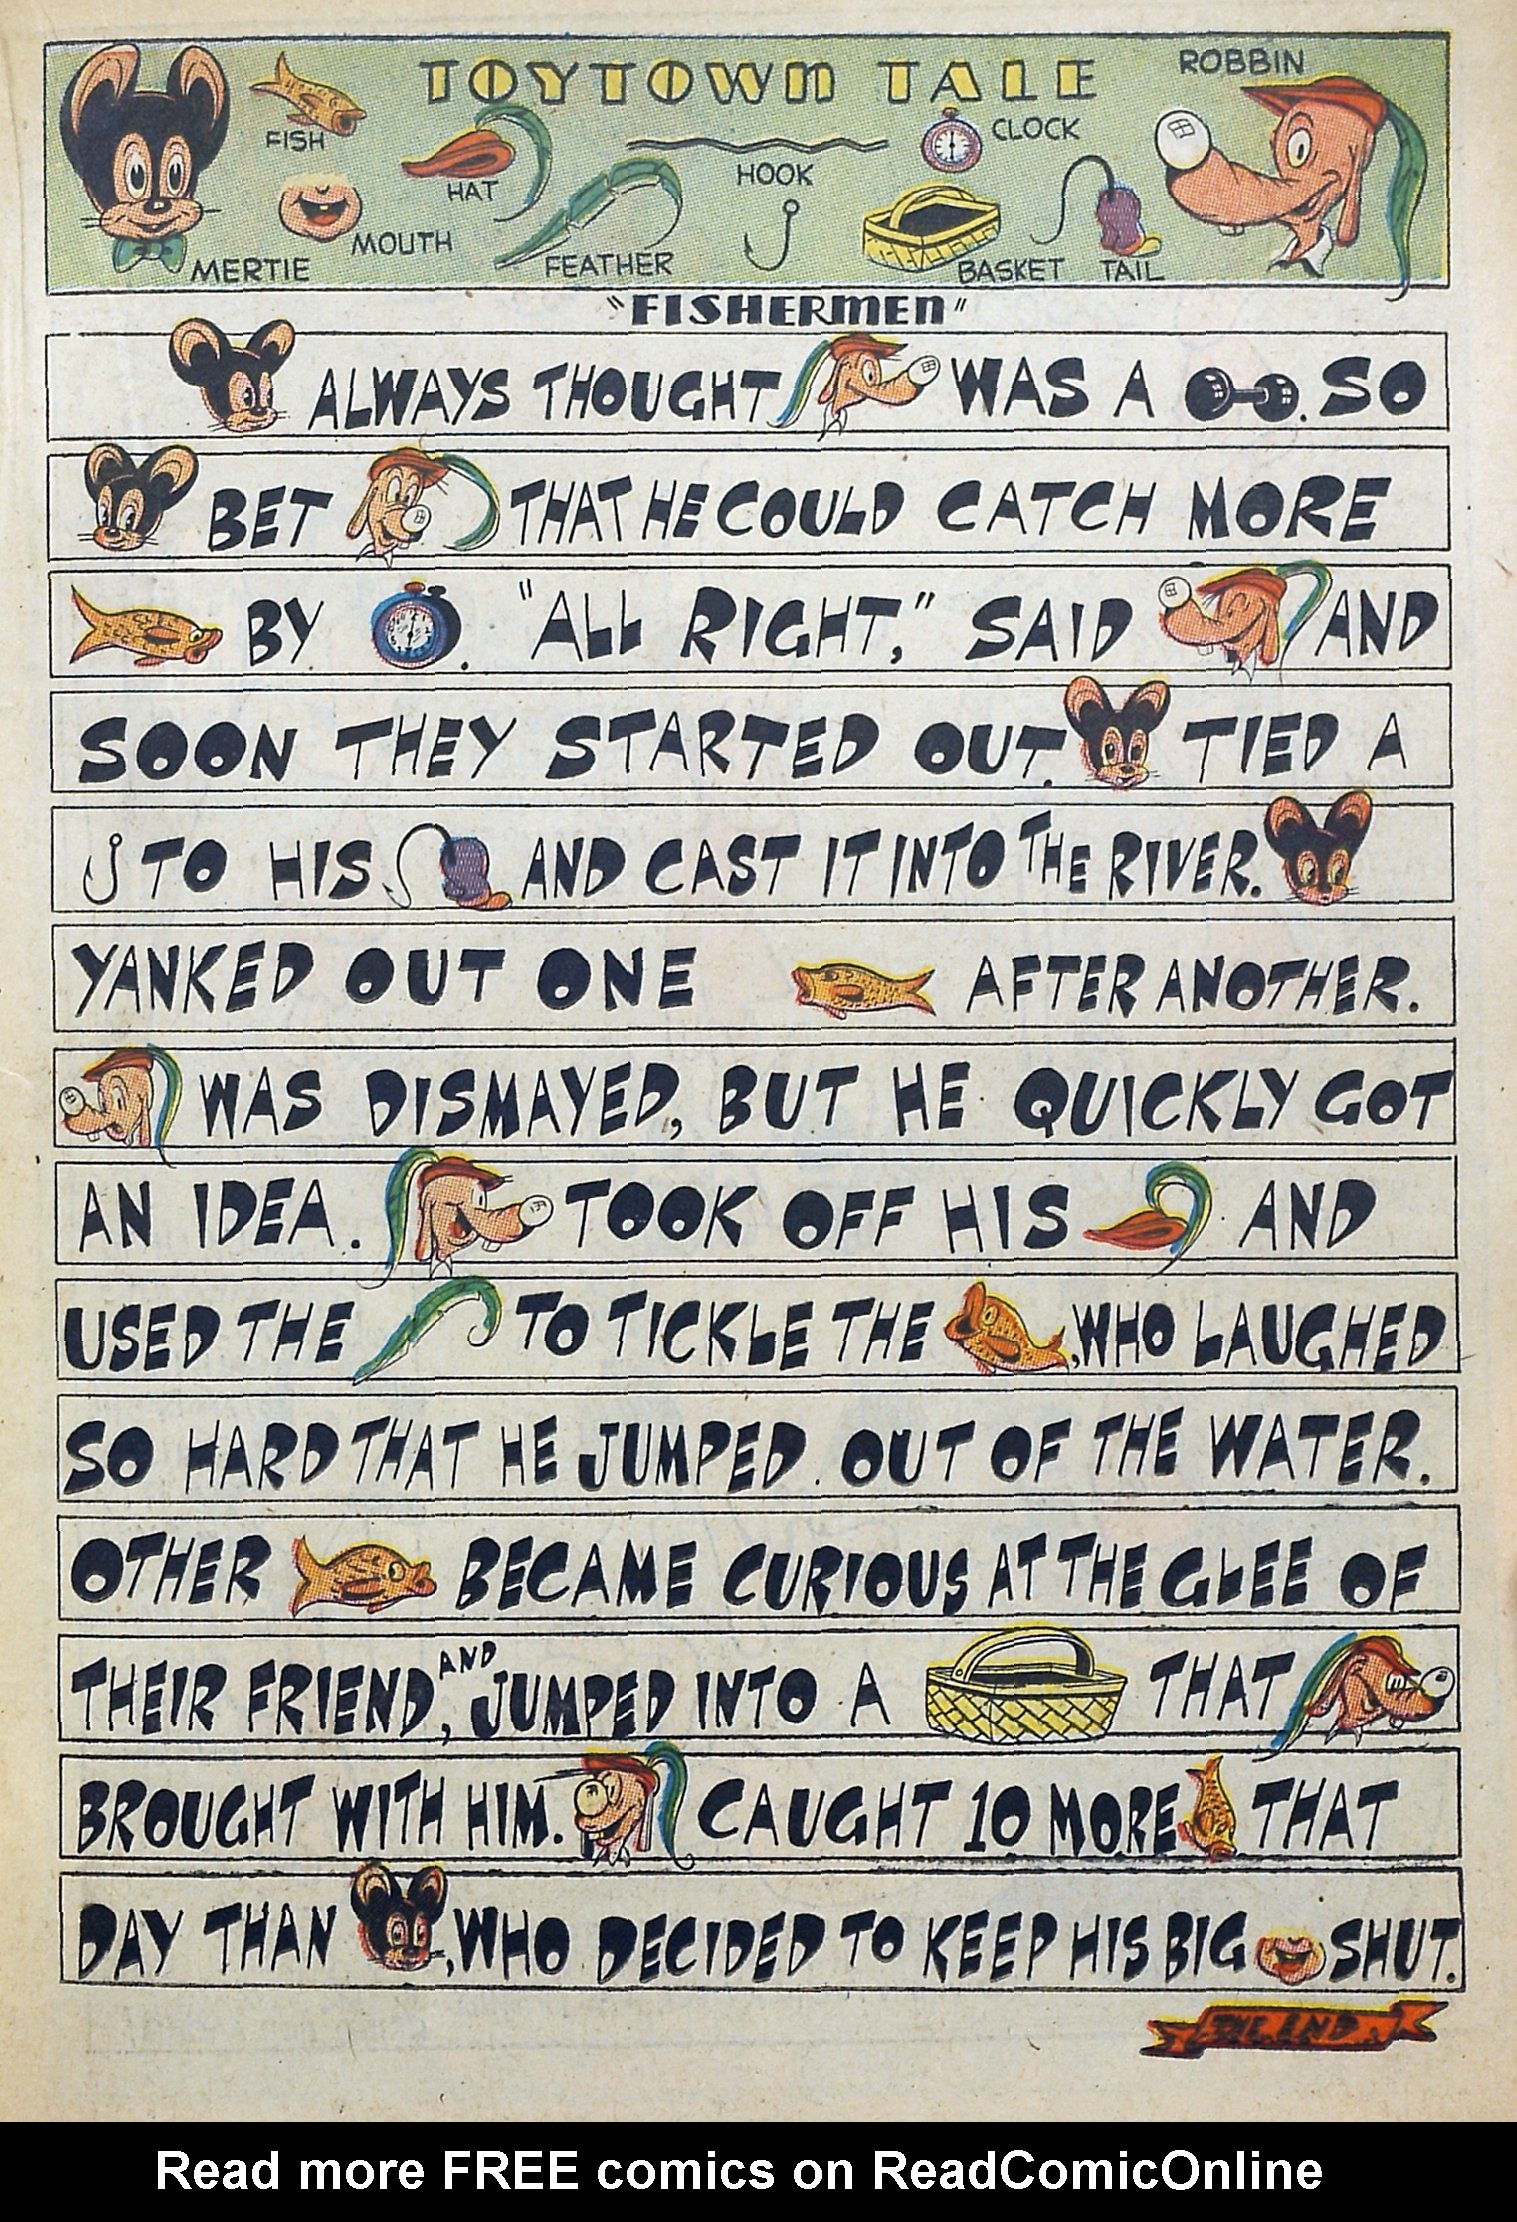 TOYTOWN TALE
ROBBIN
FISH
CLOCK
HAT
HOOK
MOUTH
MERTIE
FEATHER
BASKET
TAIL
"FISHERMEN"
ALWAYS THOUGHT WAS A . SO
BET THAT HE COULD CATCH MORE
BY . "ALL RIGHT," SAID AND
SOON THEY STARTED OUT. TIED A
TO HIS AND CAST IT INTO THE RIVER.
YANKED OUT ONE AFTER ANOTHER.
WAS DISMAYED, BUT HE QUICKLY GOT
AN IDEA. TOOK OFF HIS AND
USED THE TO TICKLE THE , WHO LAUGHED
SO HARD THAT HE JUMPED OUT OF THE WATER.
OTHER BECAME CURIOUS AT THE GLEE OF
THEIR FRIEND, AND JUMPED INTO A THAT
BROUGHT WITH HIM. CAUGHT 10 MORE THAT
DAY THAN , WHO DECIDED TO KEEP HIS BIG SHUT.
THE END.
Read more FREE comics on ReadComicOnline